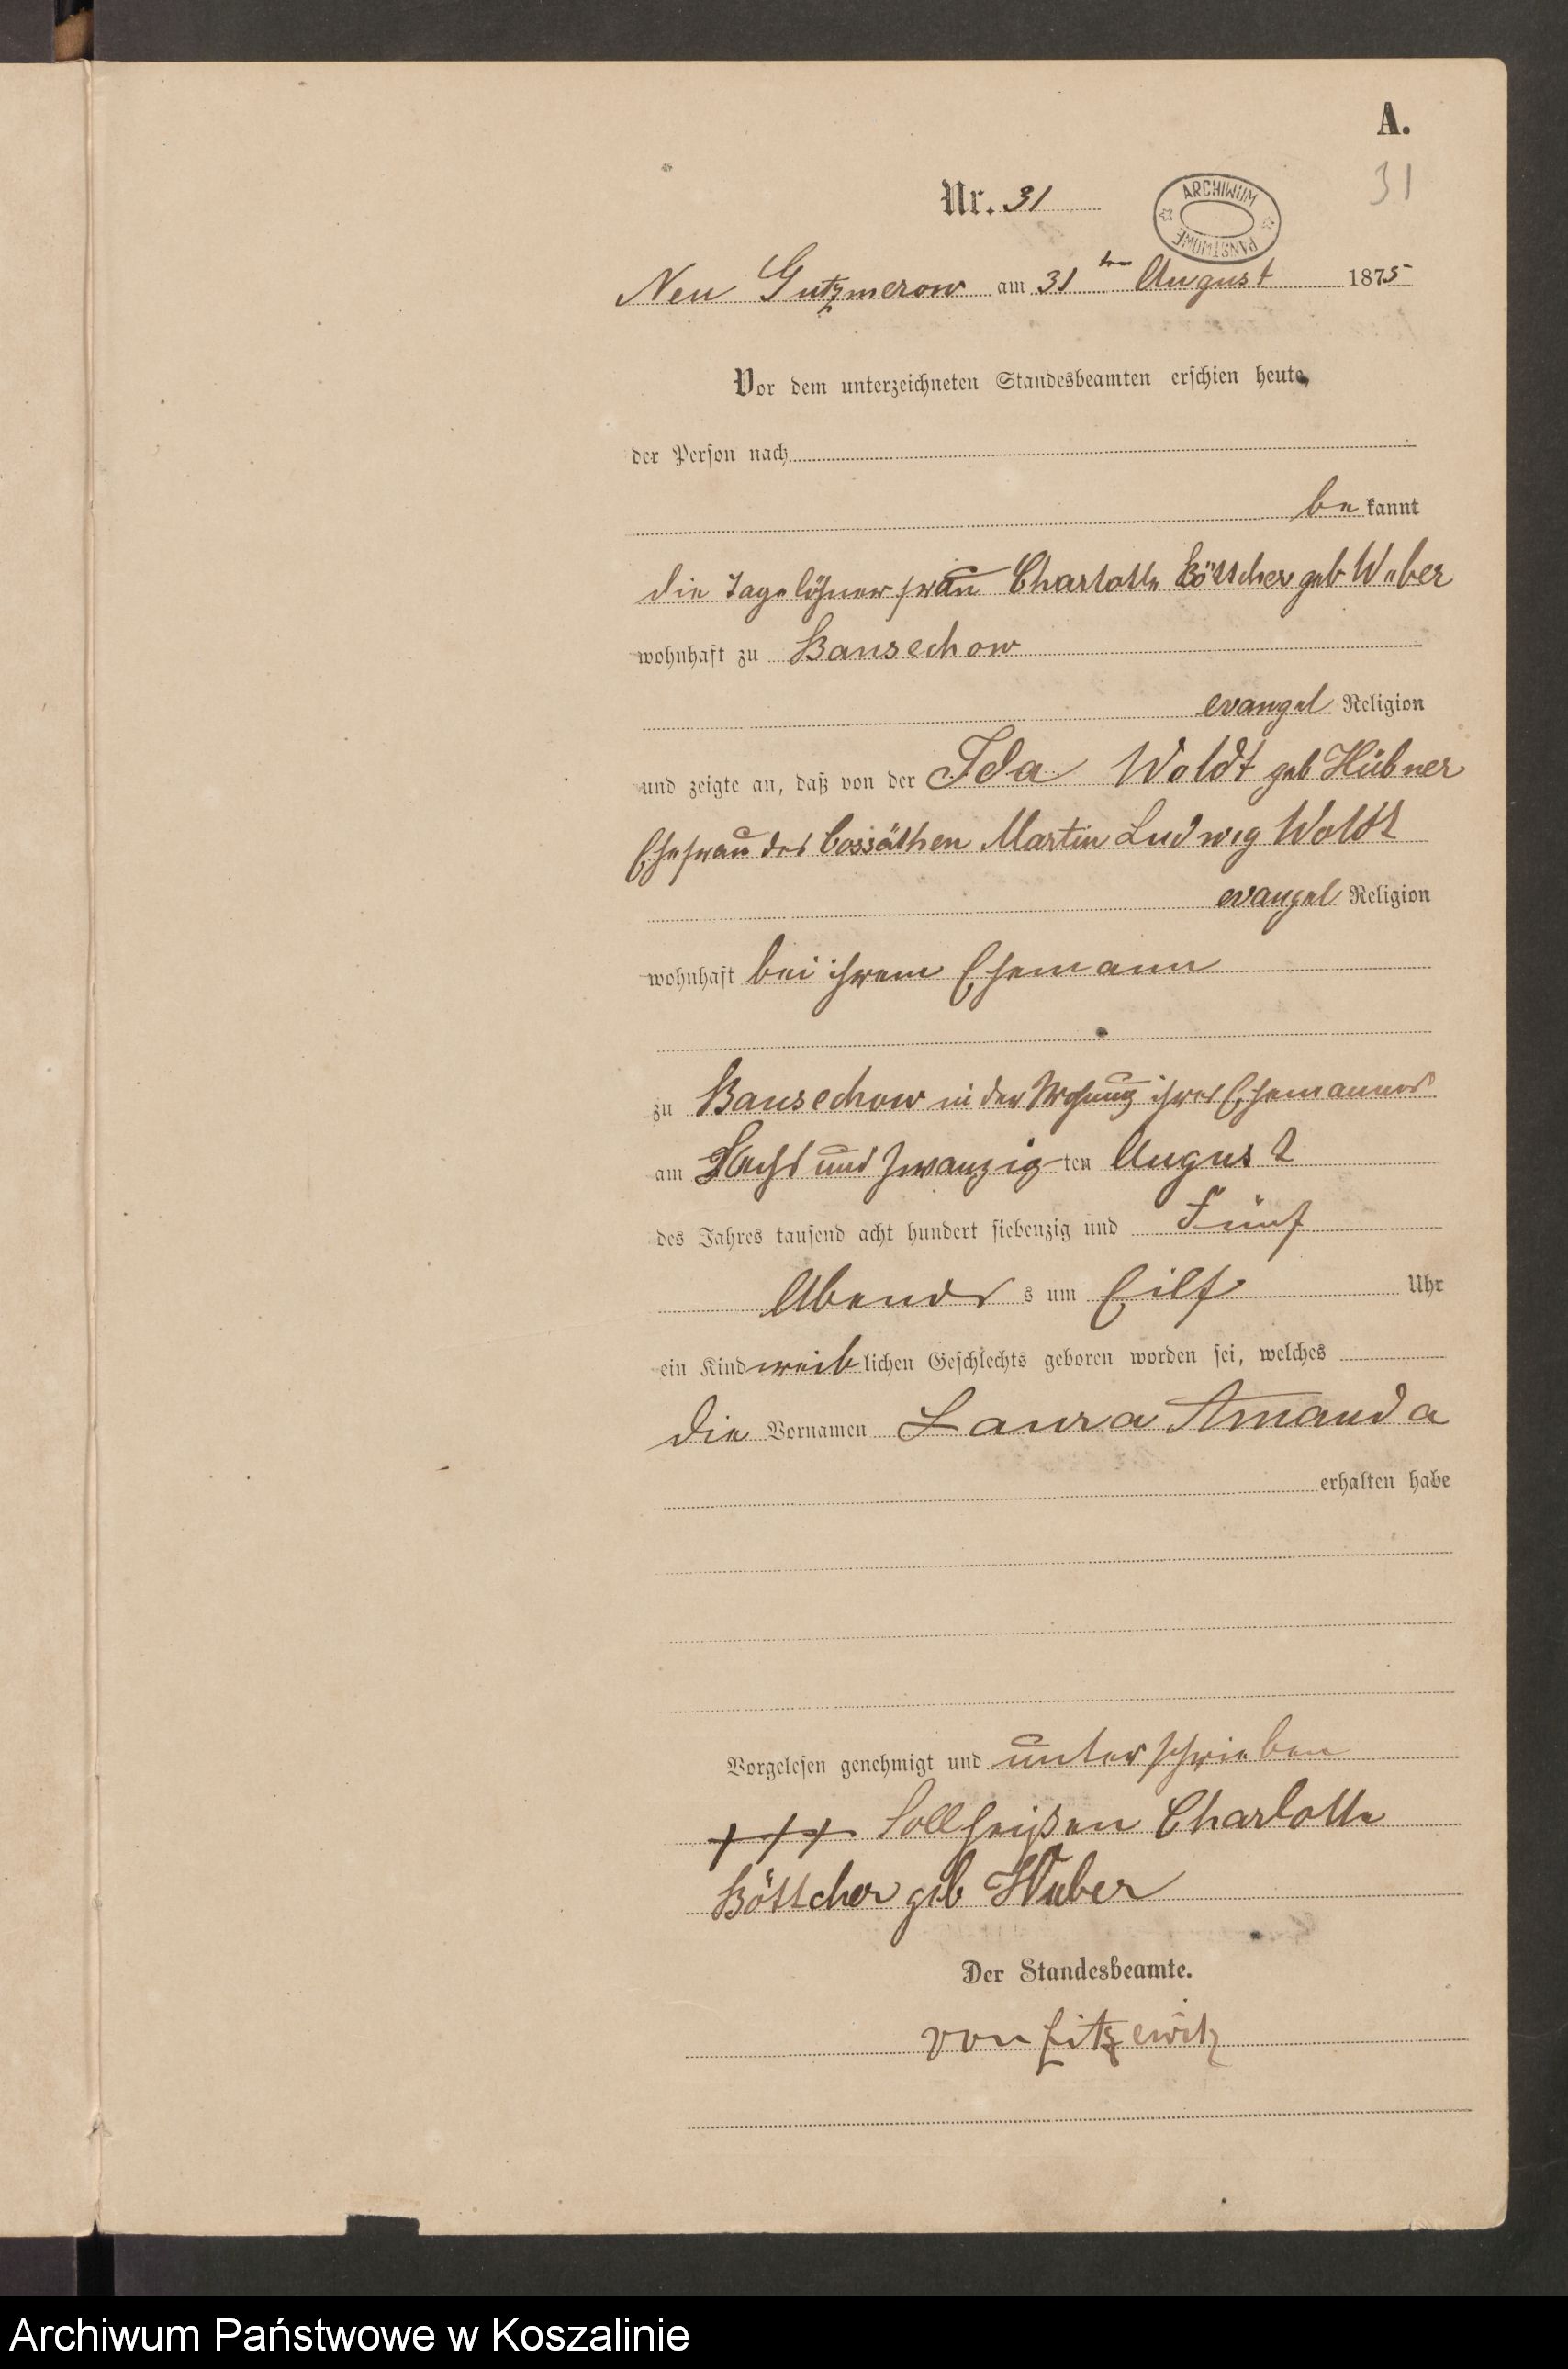 A.
31
Nr. 31
ARCHIWUM PAŃSTWOWE
Neu Gutzmerow am 31 ten August 1875
Vor dem unterzeichneten Standesbeamten erschien heute,
der Person nach
be kannt
die Tagelöhner frau Charlotte Böttcher geb Weber
wohnhaft zu Bansechow
evangel Religion
und zeigte an, daß von der Ida Woldt geb Hübner
Ehefrau des Cossäthen Martin Ludwig Woldt
evangel Religion
wohnhaft bei ihrem Ehemann
zu Bansechow in der Wohnung ihres Ehemannes
am Sechs und zwanzig ten August
des Jahres tausend acht hundert siebenzig und Fünf
Abends s um Eilf Uhr
ein Kind weib lichen Geschlechts geboren worden sei, welches
die Vornamen Laura Amanda
erhalten habe
Vorgelesen genehmigt und unterschrieben
+++ Soll heißen Charlotte
Böttcher geb Weber
Der Standesbeamte.
von Zitzewitz
Archiwum Państwowe w Koszalinie